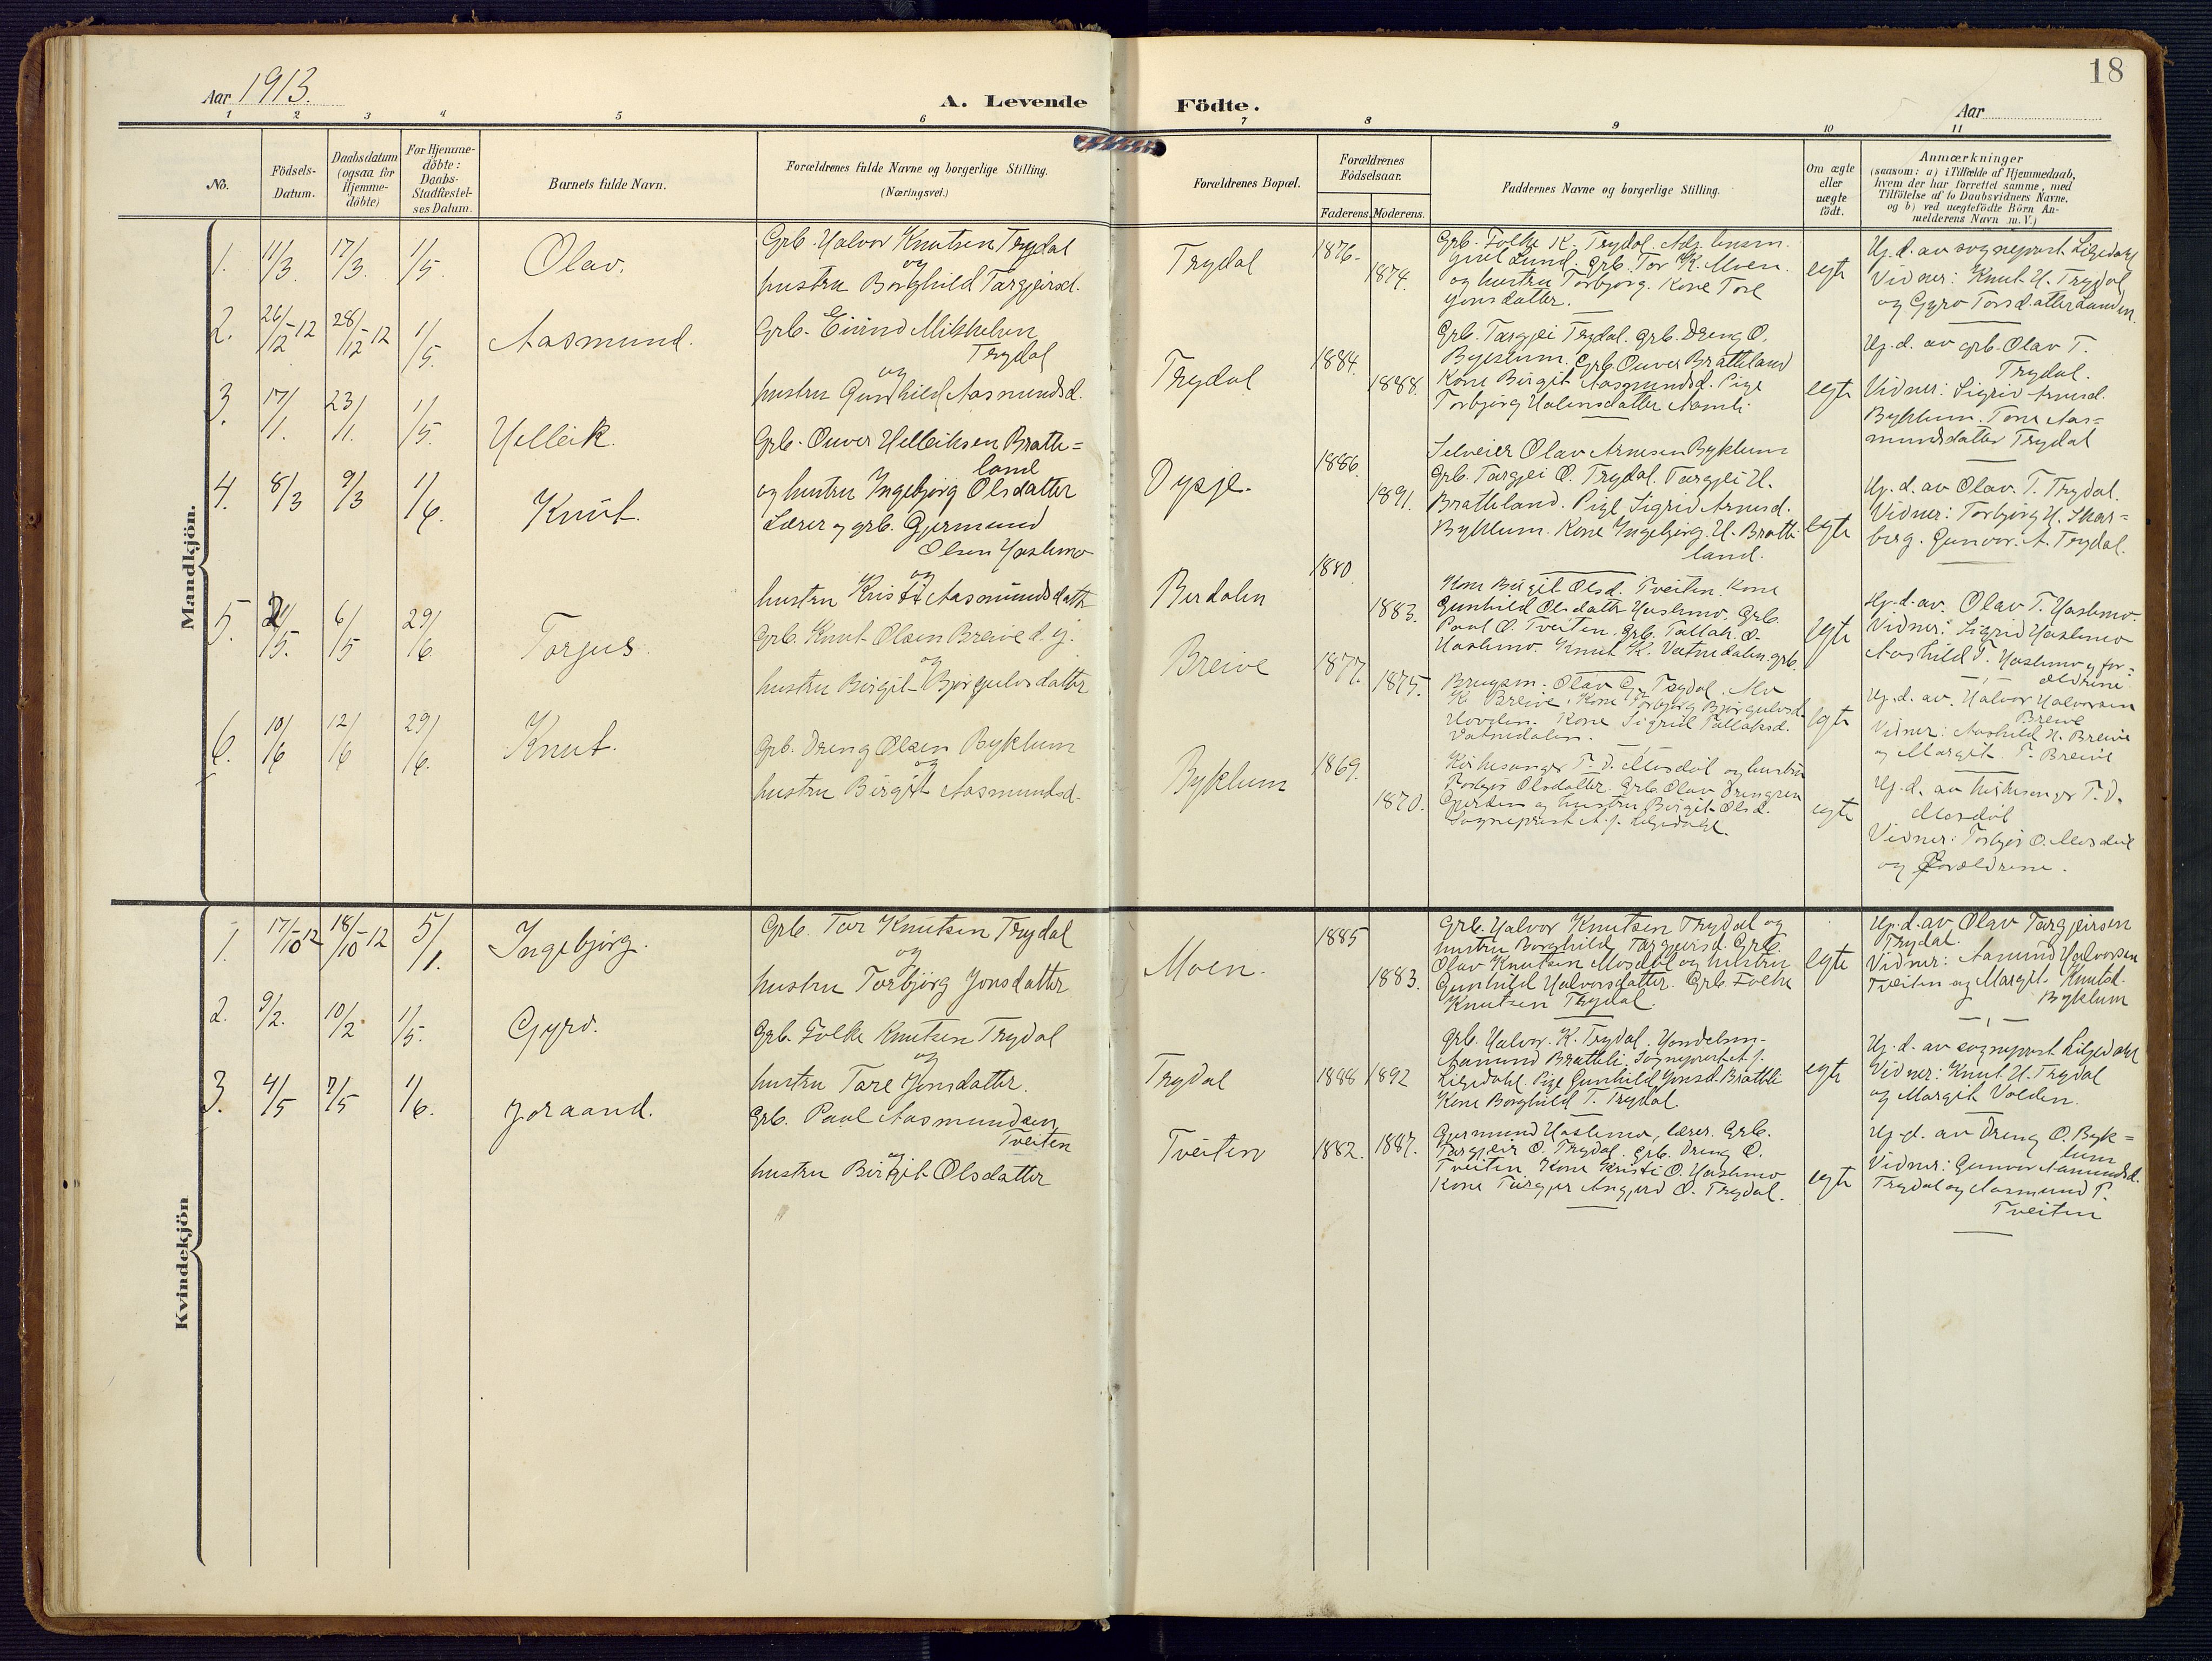 18
Aar 1913.
A. Levende Födte.
Aar
1 2 3 4 5 6 7 8 9 10 11
No.
Födsels-
Datum.
Daabsdatum
(ogsaa for
Hjemme-
döbte)
For Hjemme-
döbte:
Daabs-
Stadfæstel-
ses Datum.
Barnets fulde Navn.
Forældrenes fulde Navne og borgerlige Stilling.
(Næringsvei.)
Forældrenes Bopæl.
Forældrenes
Födselsaar.
Faderens. Moderens.
Faddernes Navne og borgerlige Stilling.
Om ægte
eller
uægte
födt.
Anmærkninger
(saasom: a) i Tilfælde af Hjemmedaab,
hvem der har forrettet samme, med
Tilföielse af to Daabsvidners Navne.
og b) ved uægtefödte Börn An-
melderens Navn m. V.)
Mandkjön.
1. 11/3. 17/3. 1/5. Olav.
Grb. Halvor Knutsen Trydal
og
hustru Borghild Targjeirsd.
Trydal
1876.
1874.
Grb. Folke K. Trydal.
Lund. Grb. Tor K. Moen.
og hustru Torbjørg. Kone Tore
Jonsdatter.
egte
Hj. d. av sogneprest Liljedahl
Vidner: Knut H. Trydal
og Gyro Torsdatter
2. 26/12-12 28/12-12 1/5. Aasmund.
Grb. Eivind Mikkelsen
Trydal
og
hustru Gunhild Aasmundsd.
Trydal
1884.
1888.
Grb. Targjei Trydal. Grb. Dreng O.
Byklum. Grb. Ouver Bratteland
Kone Birgit Aasmundsd. Pige
Torbjørg Halvorsdatter
egte
Hj. d. av grb. Olav T.
Trydal.
Vidner: Sigrid Arnesd.
Byklum. Tone Aas=
mundsdatter Trydal
3. 17/1. 23/1. 1/5. Helleik.
Grb. Ouver Helleiksen Bratte=
land
og hustru Ingebjørg Olsdatter
1886.
1891.
Selveier Olav Arnesen Byklum
Grb. Targjei O. Trydal. Targjei H.
Bratteland. Pige Sigrid Arnesd.
Byklum. Kone Ingebjørg H. Bratte
land.
egte
Hj. d. av Olav. T. Trydal.
Vidner: Torbjørg H. Skar=
berg. Gunvor. A. Trydal.
4. 8/3 9/3 1/6. Knut.
Lærer og grb. Gjermund
Olsen Haslemo
og
hustru Kristi Aasmundsdatter
Berdalen
1880.
1883.
Kone Birgit Olsd. Tveiten. Kone
Gunhild Olsdatter Haslemo. Grb.
Paul O. Tveiten. Grb. Tallak. O.
Haslemo. Knut K. Vatnedalen. grb.
egte
Hj. d. av. Olav T. Haslemo.
Vidner: Sigrid Haslemo
Aashild T. Haslemo og for=
ældrene
5. 2/5. 6/5 29/6. Torjus.
Grb. Knut Olsen Breive d. y.
og
hustru Birgit Bjørgulvsdatter
Breive
1877.
1875.
Brugsm. Olav Gr. Trydal.
K. Breive. Kone Torbjørg Bjørgulvsd.
Hovden. Kone Sigrid Tallaksd.
Vatnedalen.
egte
Hj. d. av. Halvor Halvorsen
Breive
Vidner: Aashild H. Breive
og Margit T. Breive
6. 10/6 12/6 29/6. Knut.
Grb. Dreng Olsen Byklum
og
hustru Birgit Aasmundsd.
Byklum
1869.
1870.
Kirkesanger T. D. Mosdöl og hustru
Torbjör Olsdatter. Grb. Olav Drengsen
og hustru Birgit Olsd.
Sogneprest A. J. Liljedahl.
egte
Hj. d. av kirkesanger T. D.
Mosdöl
Vidner: Torbjör O. Mosdöl
og Forældrene.
Kvindekjön
1. 17/10-12 18/10-12 5/1. Ingebjörg.
Grb. Tor Knutsen Trydal
og
hustru Torbjörg Jonsdatter
Moen.
1885
1883.
Grb. Halvor Knutsen Trydal og
hustru Borghild Targjeirsd. Grb.
Olav Knutsen Mosdöl og hustru
Gunhild Halvorsdatter. Grb. Folke
Knutsen Trydal.
egte
Hj. d. av Olav Targjeirsen
Trydal.
Vidner: Aamund Halvorsen
Tveiten og Margit Knutsd.
Byklum
2. 9/2. 10/2 1/5. Gyro.
Grb. Folke Knutsen Trydal
og
hustru Tore Jonsdatter.
Trydal
1888 1892
Grb. Halvor. K. Trydal. Handelsm.
Aamund Bratteli. Sogneprest A. J.
Liljedahl. Pige Gunhild Jonsd. Bratteli
Kone Borghild T. Trydal.
egte
Hj. d. av sogneprest Liljedahl
Vidner: Knut H. Trydal
og Margit Volden.
3. 4/5 7/5 1/6. Joraand.
Grb. Paul Aasmundsen
Tveiten
og
hustru Birgit Olsdatter
Tveiten
1882. 1887.
Gjermund Haslemo, lærer. Grb.
Targjeir O. Trydal. Grb. Dreng O.
Tveiten. Kone Kristi O. Haslemo
Kone Angjerd O. Trydal.
egte
Hj. d. av Dreng O. Byk=
lum
Vidner: Gunvor Aamundsd.
Trydal og Aasmund P.
Tveiten